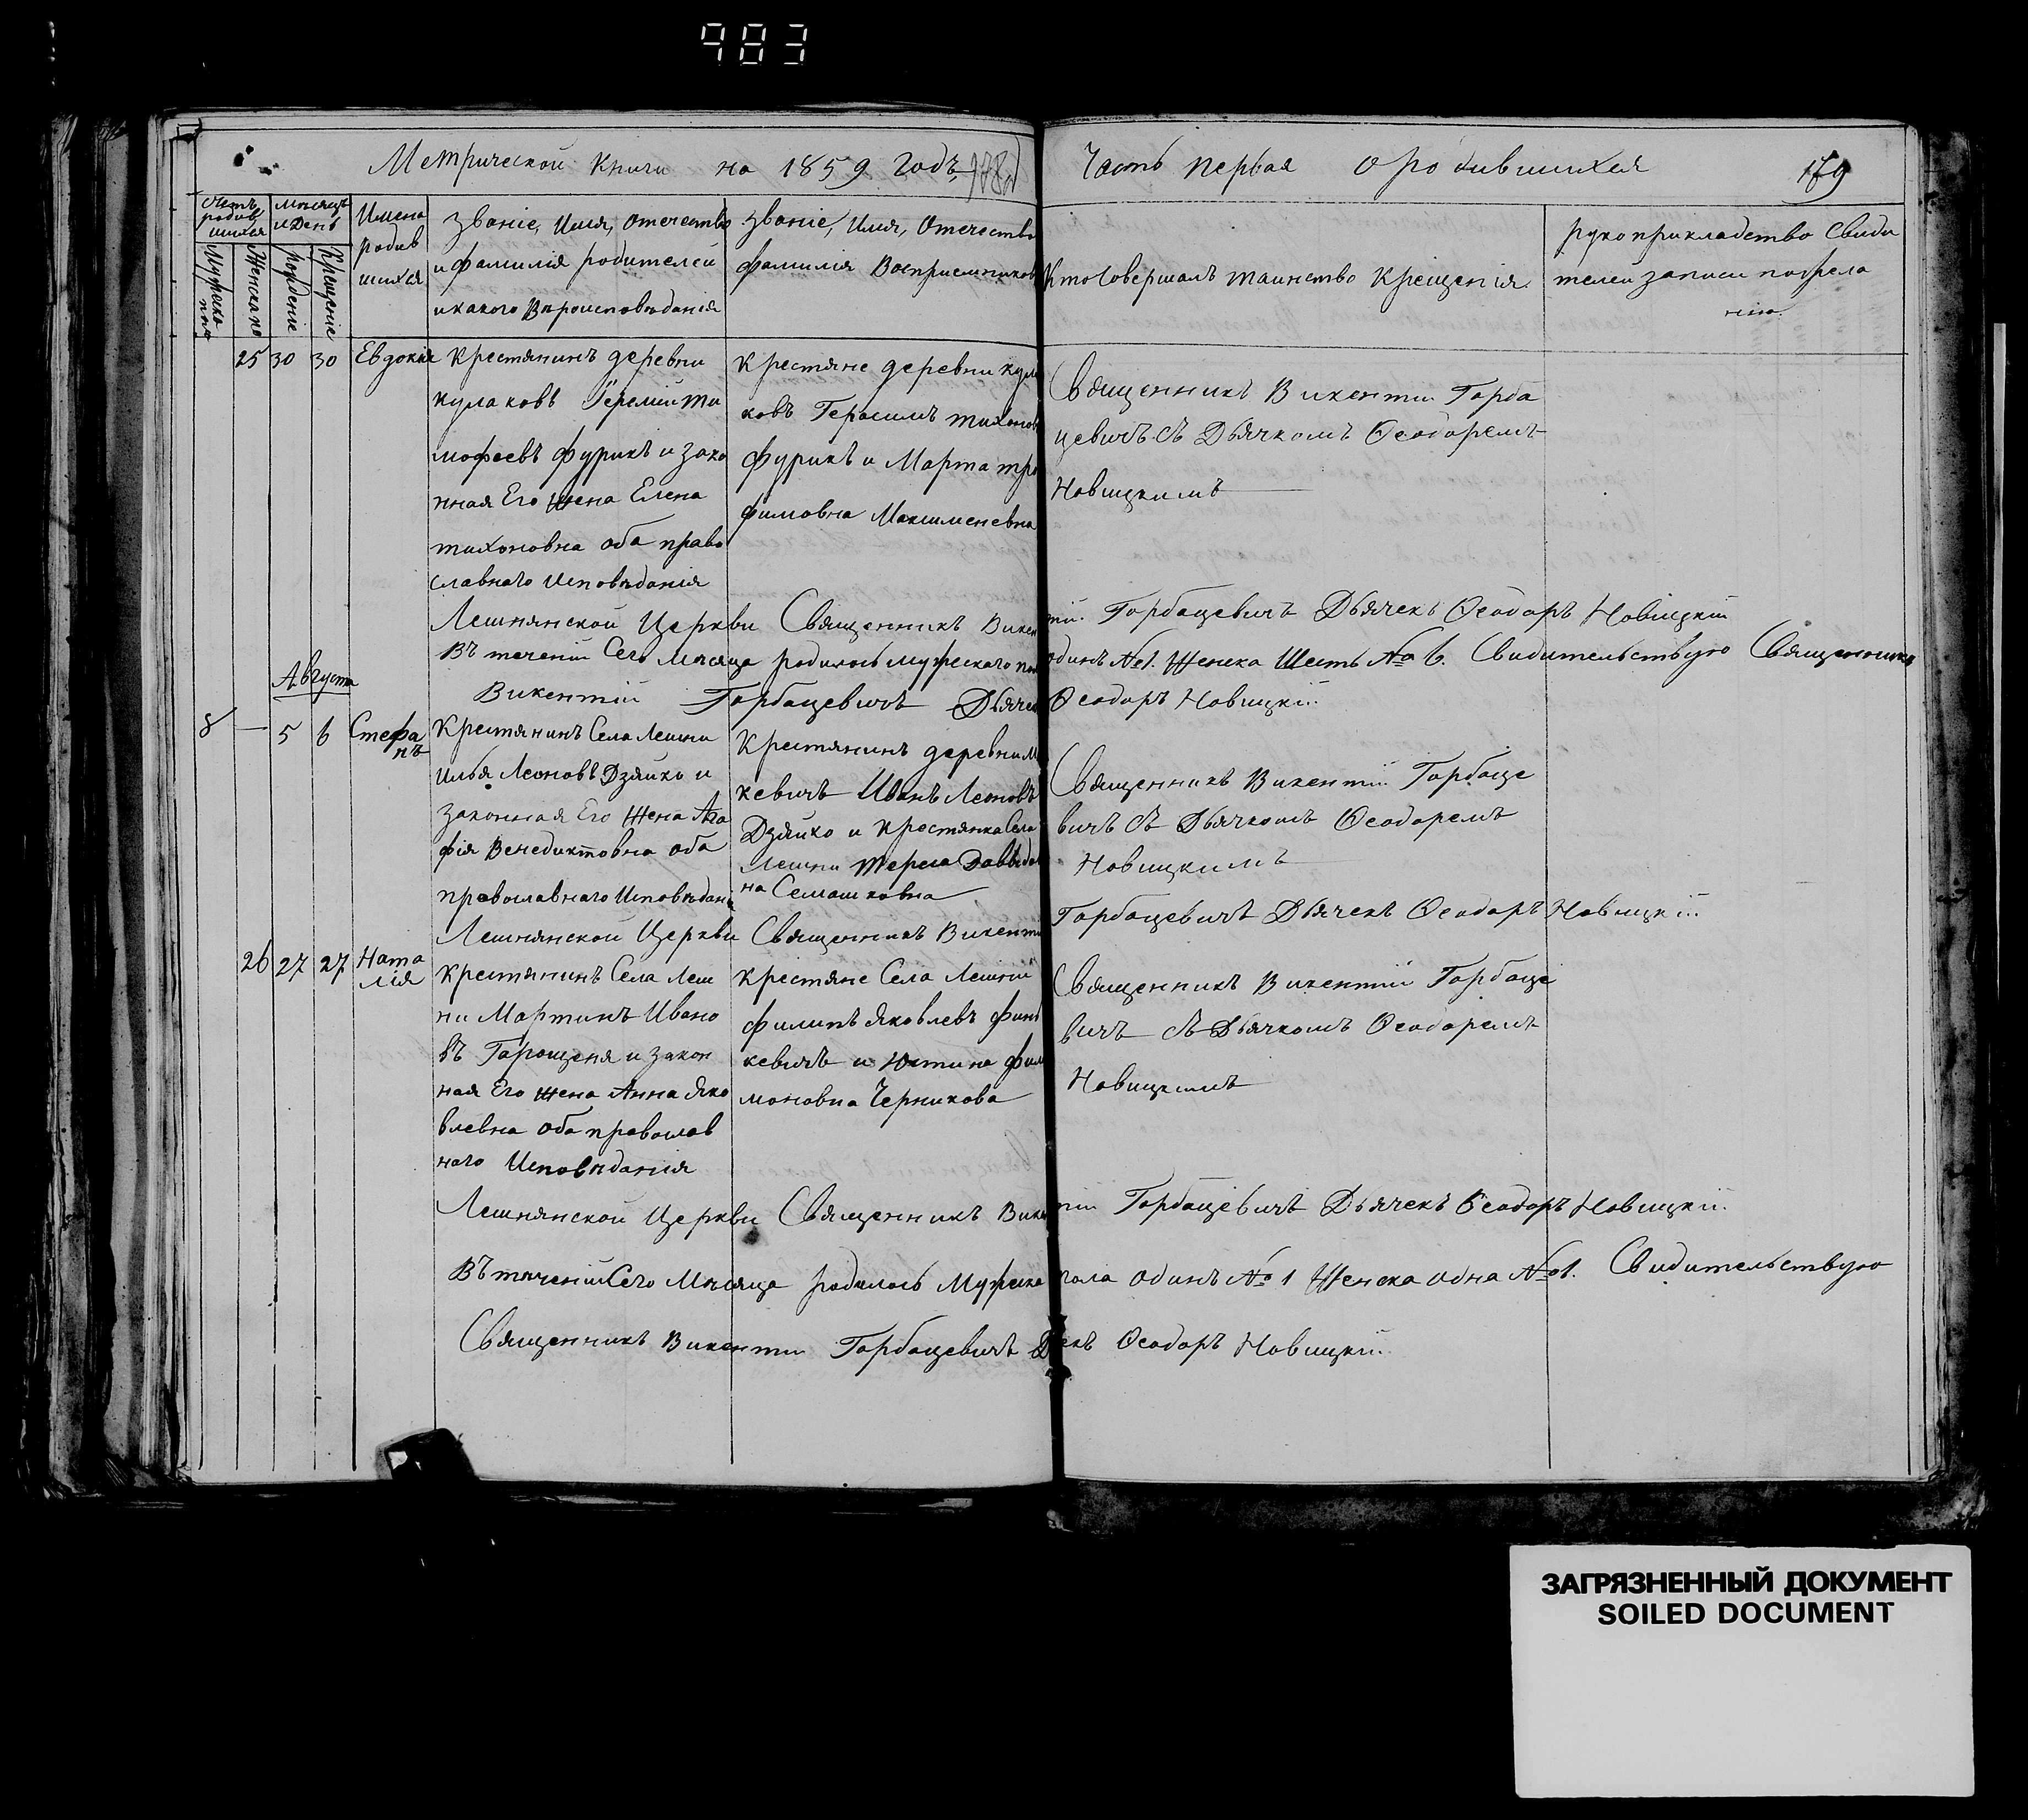 983
Метрической книги на 1859 Годъ
Часть первая о родившихся
179
Счетъ родив шихся
Мѣсяцъ и День
Имена родив шихся
Званіе, Имя, Отечество и фамилія родителей и какого Вѣроисповѣданія
Званіе, Имя, Отечество фамилія Воспріемниковъ
Кто Совершалъ таинство Крещенія
рукоприкладство Свиди телей записи по
Мужеска пола
Женска по
рожденіе
Крещеніе
25 30 30 Евдокія
Крестянинъ деревни
кулаковъ Іеремій ти
мофеевъ фурикъ и зако
нная Его жена Елена
тихоновна оба право
славнаго Исповѣданія
Крестяне деревни кул
ковъ Герасимъ тихонов
фурикъ и Марта тро
фимовна Максименевна
Священникъ Викентій Горба
цевичъ съ Дьячкомъ Ѳеодоремъ
Новицкимъ
Лешнянской Церкви Священникъ Викен тій Горбацевичъ Дьячекъ Ѳеодоръ Новицкій
Въ теченіи Сего мѣсяца родилось мужескаго пол одинъ №1. Женска Шесть №6. Свидительствую Священникъ
Викентій Горбацевичъ Дьячек Ѳеодоръ Новицкій
Августа
8 — 5 6 Стефа нъ
Крестянинъ Села Лешни
Илья Леоновъ Дзяйко и
законная Его Жена Ага
фія Венедиктовна оба
православнаго Исповѣдані
Крестянинъ деревни М
кевичъ Иванъ Леоновъ
Дзяйко и крестянка Села
Лешни Тереса Давидов
на Семашковна
Священникъ Викентій Горбаце
вичъ съ Дьячкомъ Ѳеодоремъ
Новицкимъ
Лешнянской Церкви Священникъ Викенті Горбацевичъ Дьячекъ Ѳеодоръ Новицкій
26 27 27 Ната лія
Крестянинъ Села Леш
ни Мартинъ Ивано
въ Горощеня и закон
ная Его жена Анна Яко
влевна оба православ
наго Исповѣданія
крестяне Села Лешни
филипъ Яковлевъ финь
кевичъ и Юстина фил
моновна Черникова
Священникъ Викентій Горбаце
вичъ съ Дьячкомъ Ѳеодоремъ
Новицкимъ
Лешнянской Церкви Священникъ Викен тій Горбацевичъ Дьячекъ Ѳеодоръ Новицкій
Въ теченіи Сего Мѣсяца родилось Мужеска пола одинъ №1 Женска одна №1. Свидительствую
Священникъ Викентій Горбацевичъ Д екъ Ѳеодоръ Новицкій
ЗАГРЯЗНЕННЫЙ ДОКУМЕНТ
SOILED DOCUMENT